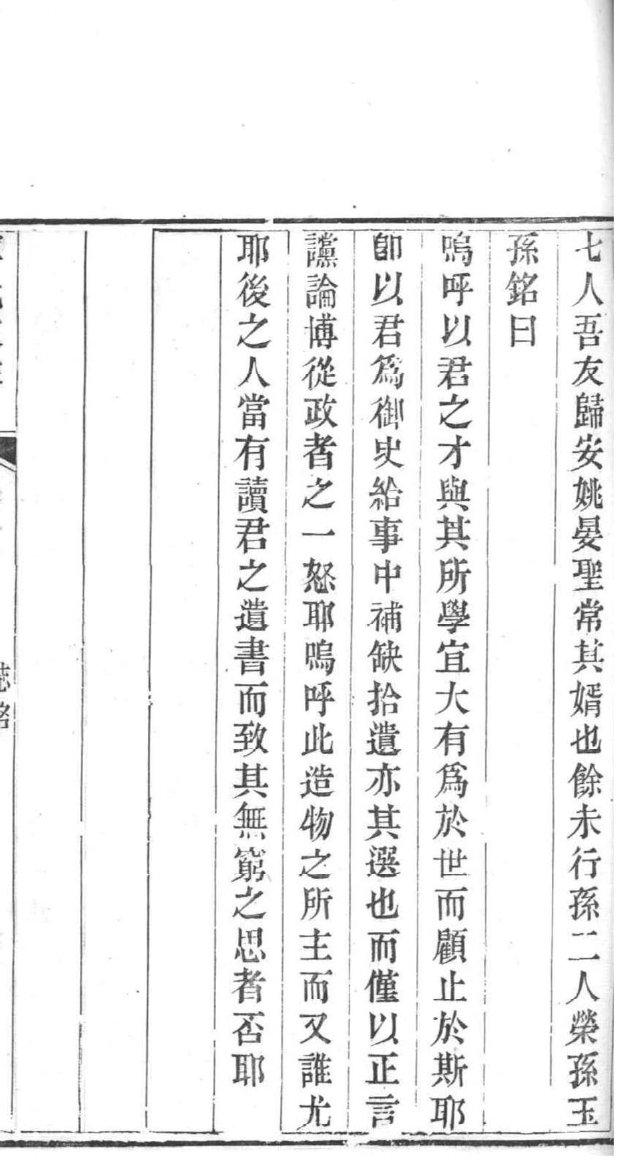 七人吾友歸安姚晏聖常其婿也餘未行孫二人榮孫玉
孫銘曰
嗚呼以君之才與其所學宜大有爲於世而顧止於斯耶
卽以君爲御史給事中補缺拾遺亦其選也而僅以正言
讜論博從政者之一怒耶嗚呼此造物之所主而又誰尤
耶後之人當有讀君之遺書而致其無窮之思者否耶
誌銘